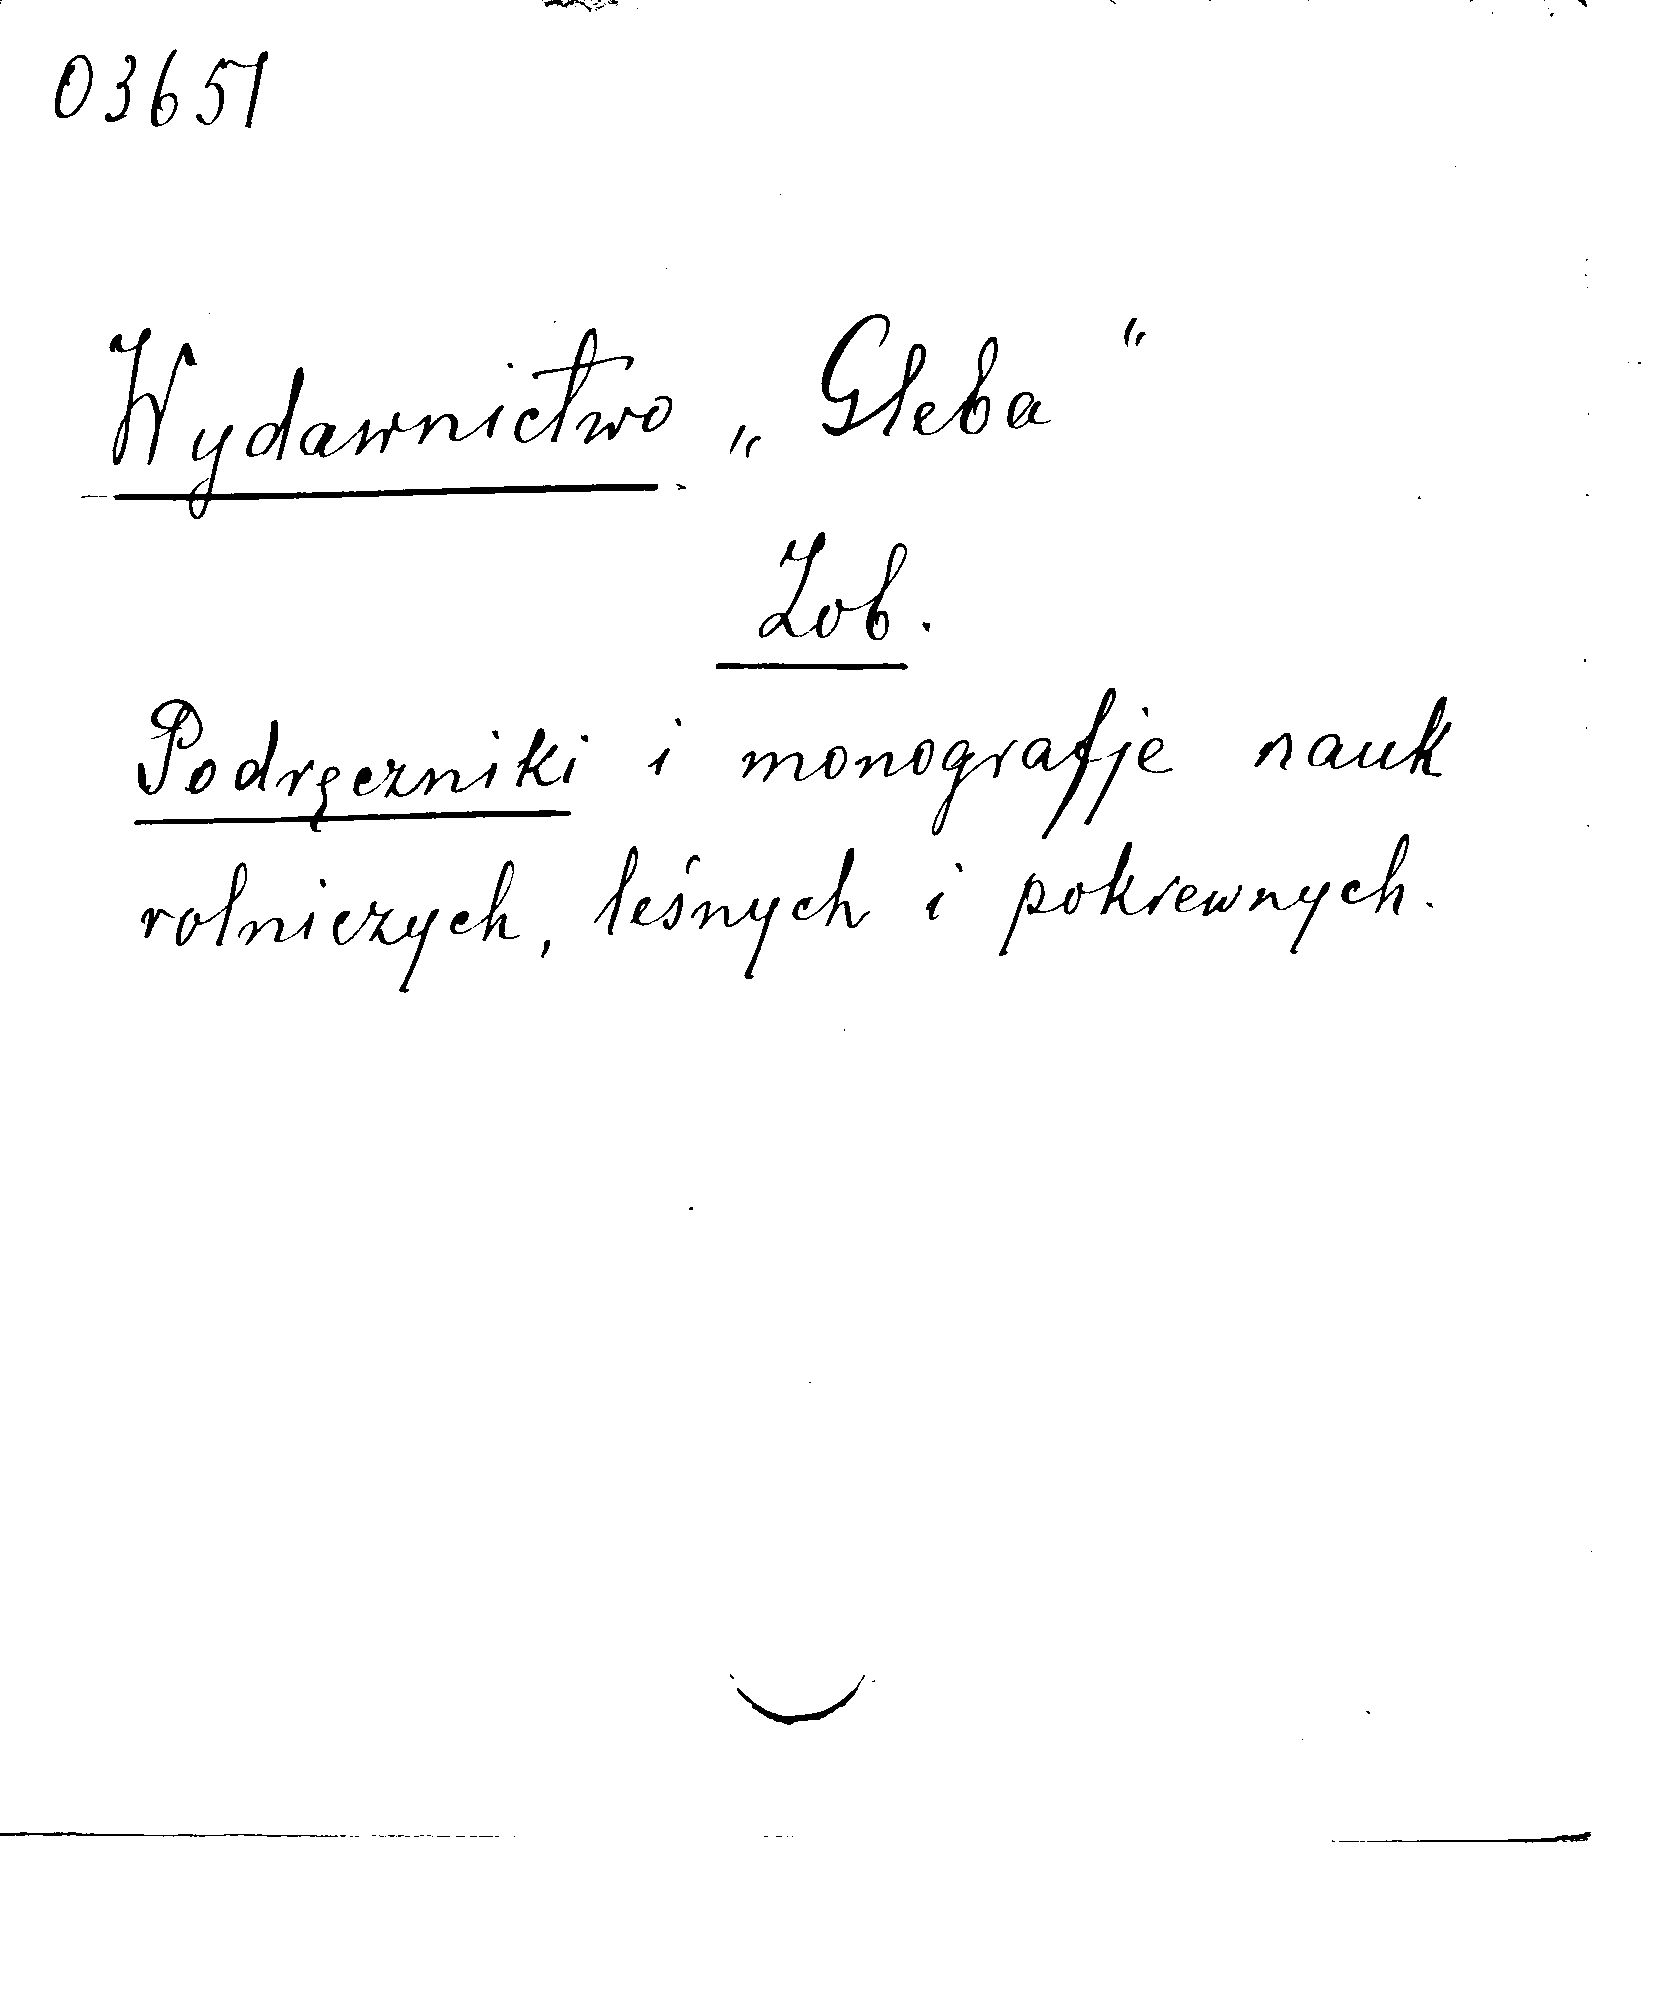 03651
Wydawnictwo „Gleba“
Zob.
Podręczniki i monografje nauk
rolniczych, leśnych i pokrewnych.